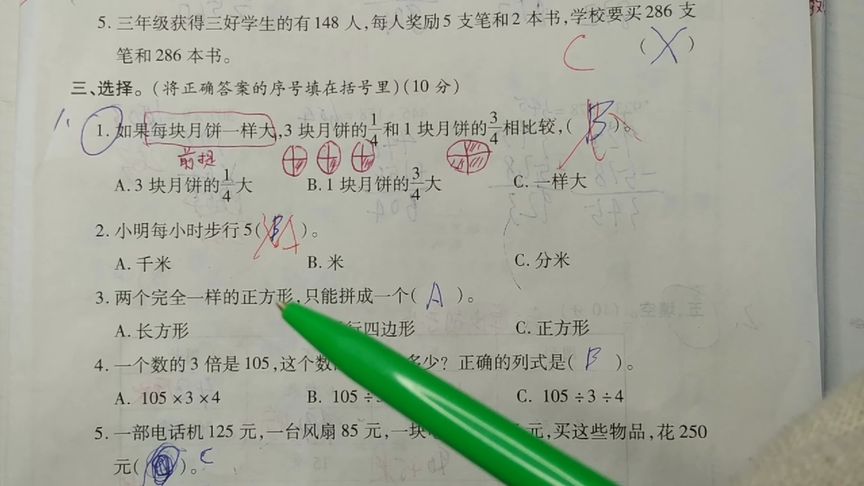 5. 三年级获得三好学生的有148人,每人奖励5支笔和2本书,学校要买286支
笔和286本书。 C (X)
三、选择。(将正确答案的序号填在括号里)(10分)
1. 如果每块月饼一样大,3块月饼的1/4和1块月饼的3/4相比较,(B)。
前提
A. 3块月饼的1/4大 B. 1块月饼的3/4大 C. 一样大
2. 小明每小时步行5(B)。A
A. 千米 B. 米 C. 分米
3. 两个完全一样的正方形,只能拼成一个(A)。
A. 长方形 行四边形 C. 正方形
4. 一个数的3倍是105,这个数 多少?正确的列式是(B)。
A. 105×3×4 B. 105÷ C. 105÷3÷4
5. 一部电话机125元,一台风扇85元,一块 元,买这些物品,花250
元( )。C